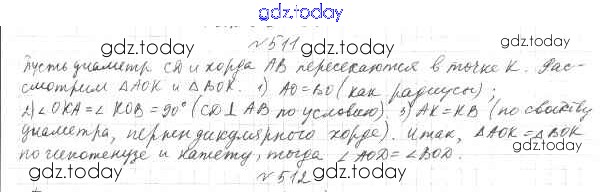 gdz.today
№511
gdz.today gdz.today gdz.today
Пусть диаметр CD и хорда AB пересекаются в точке K. Рас-
смотрим ΔAOK и ΔBOK. 1) AO=BO (как радиусы);
gdz.today gdz.today gdz.today
2) ∠OKA=∠KOB=90° (CD⊥AB по условию) 3) AK=KB (по свойству
диаметра, перпендикулярного хорде). Итак, ΔAOK=ΔBOK
по гипотенузе и катету, тогда ∠AOD=∠BOD.
gdz.today gdz.today gdz.today
№512